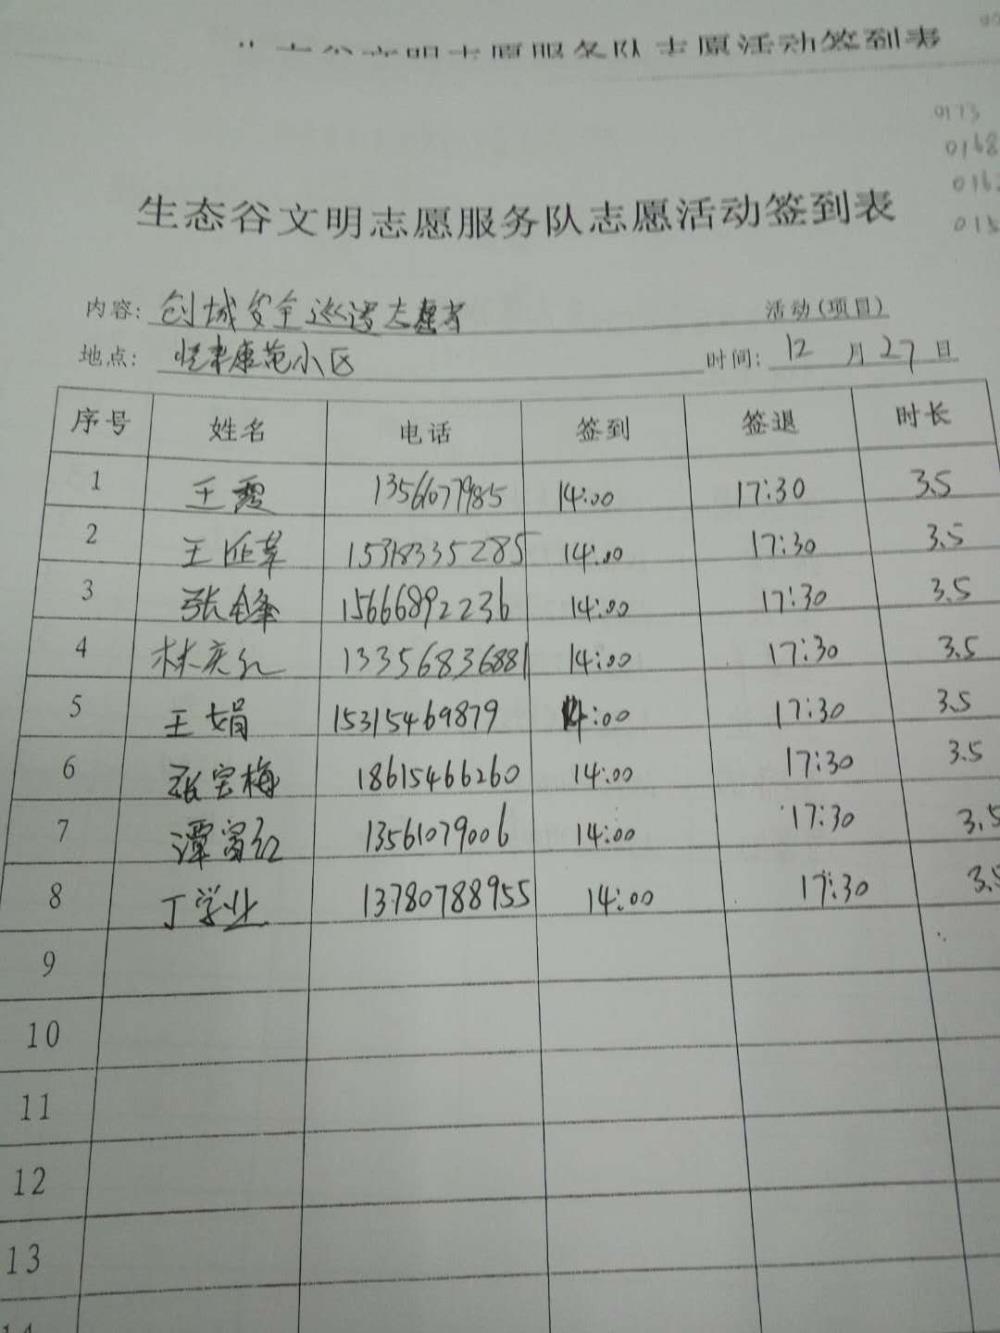 志愿服务队志愿活动签到表
0173
0168
生态谷文明志愿服务队志愿活动签到表
内容: 创城安全巡逻志愿者 活动(项目)
地点: 康范小区 时间: 12 月 27 日
序号 姓名 电话 签到 签退 时长
1 王霞 14:00 17:30 3.5
2 王 15318335285 14:00 17:30 3.5
3 张锋 15666892236 14:00 17:30 3.5
4 林庆红 13356836881 14:00 17:30 3.5
5 王娟 15315469879 14:00 17:30 3.5
6 张宝梅 18615466260 14:00 17:30 3.5
7 谭富红 13561079006 14:00 17:30 3.5
8 丁学业 13780788955 14:00 17:30 3.5
9
10
11
12
13